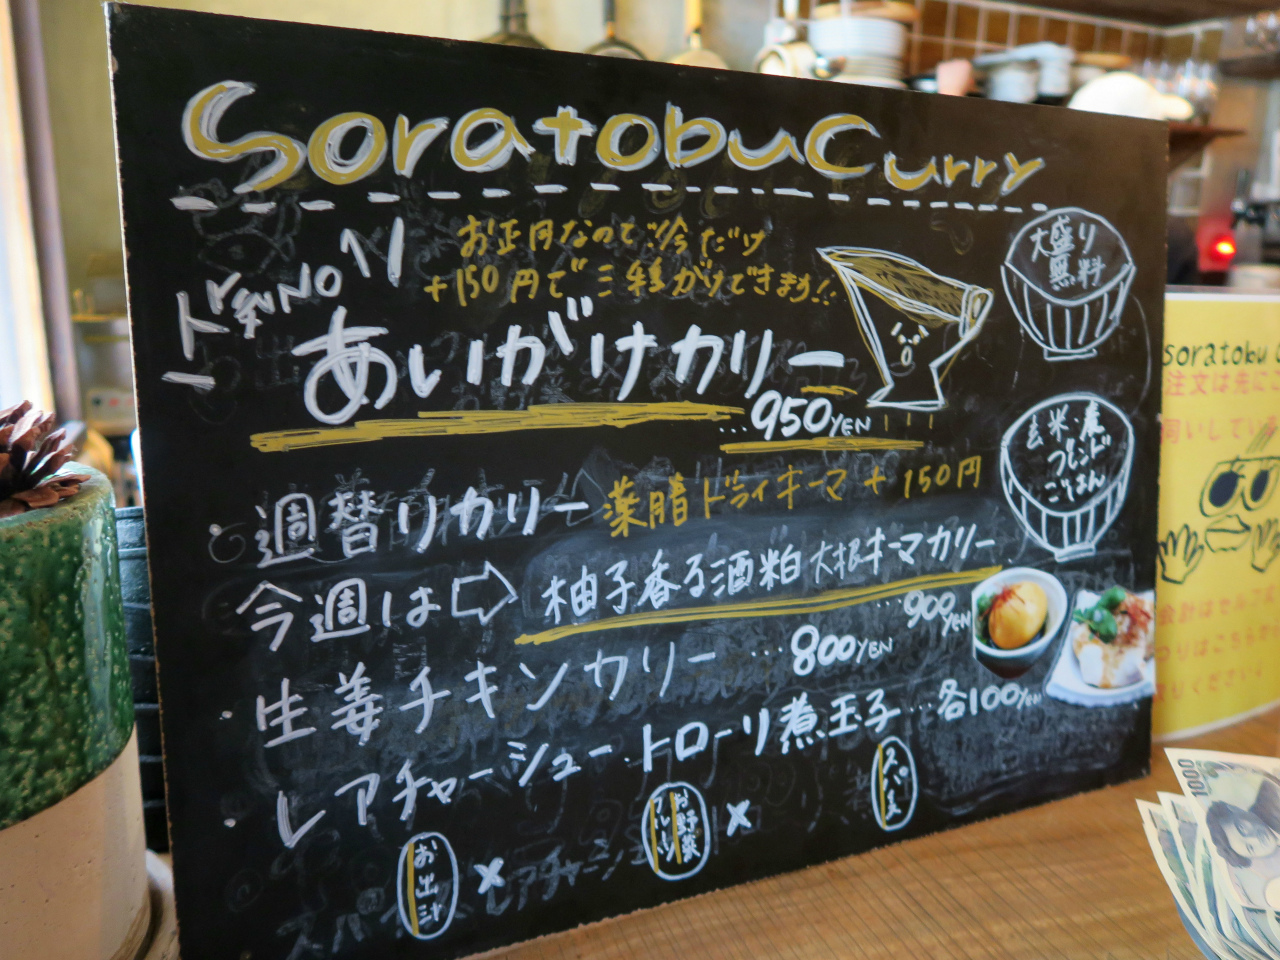 Soratobu Curry
お正月なので今だけ
+150円で三種がけできます!!
人気NO1
あいがけカリー
...950YEN
大盛り
無料
玄米・麦
ブレンド
ごはん
・週替りカリー 薬膳ドライキーマ+150円
今週は⇨ 柚子香る酒粕大根キーマカリー
...900YEN
・生姜チキンカリー ...800YEN
・レアチャーシュー・トローリ煮玉子...各100YEN
お出汁 × お野菜 フルーツ × スパイス
soratobu
注文は先に
伺いしてい
会計はセルフ
ください!
1000